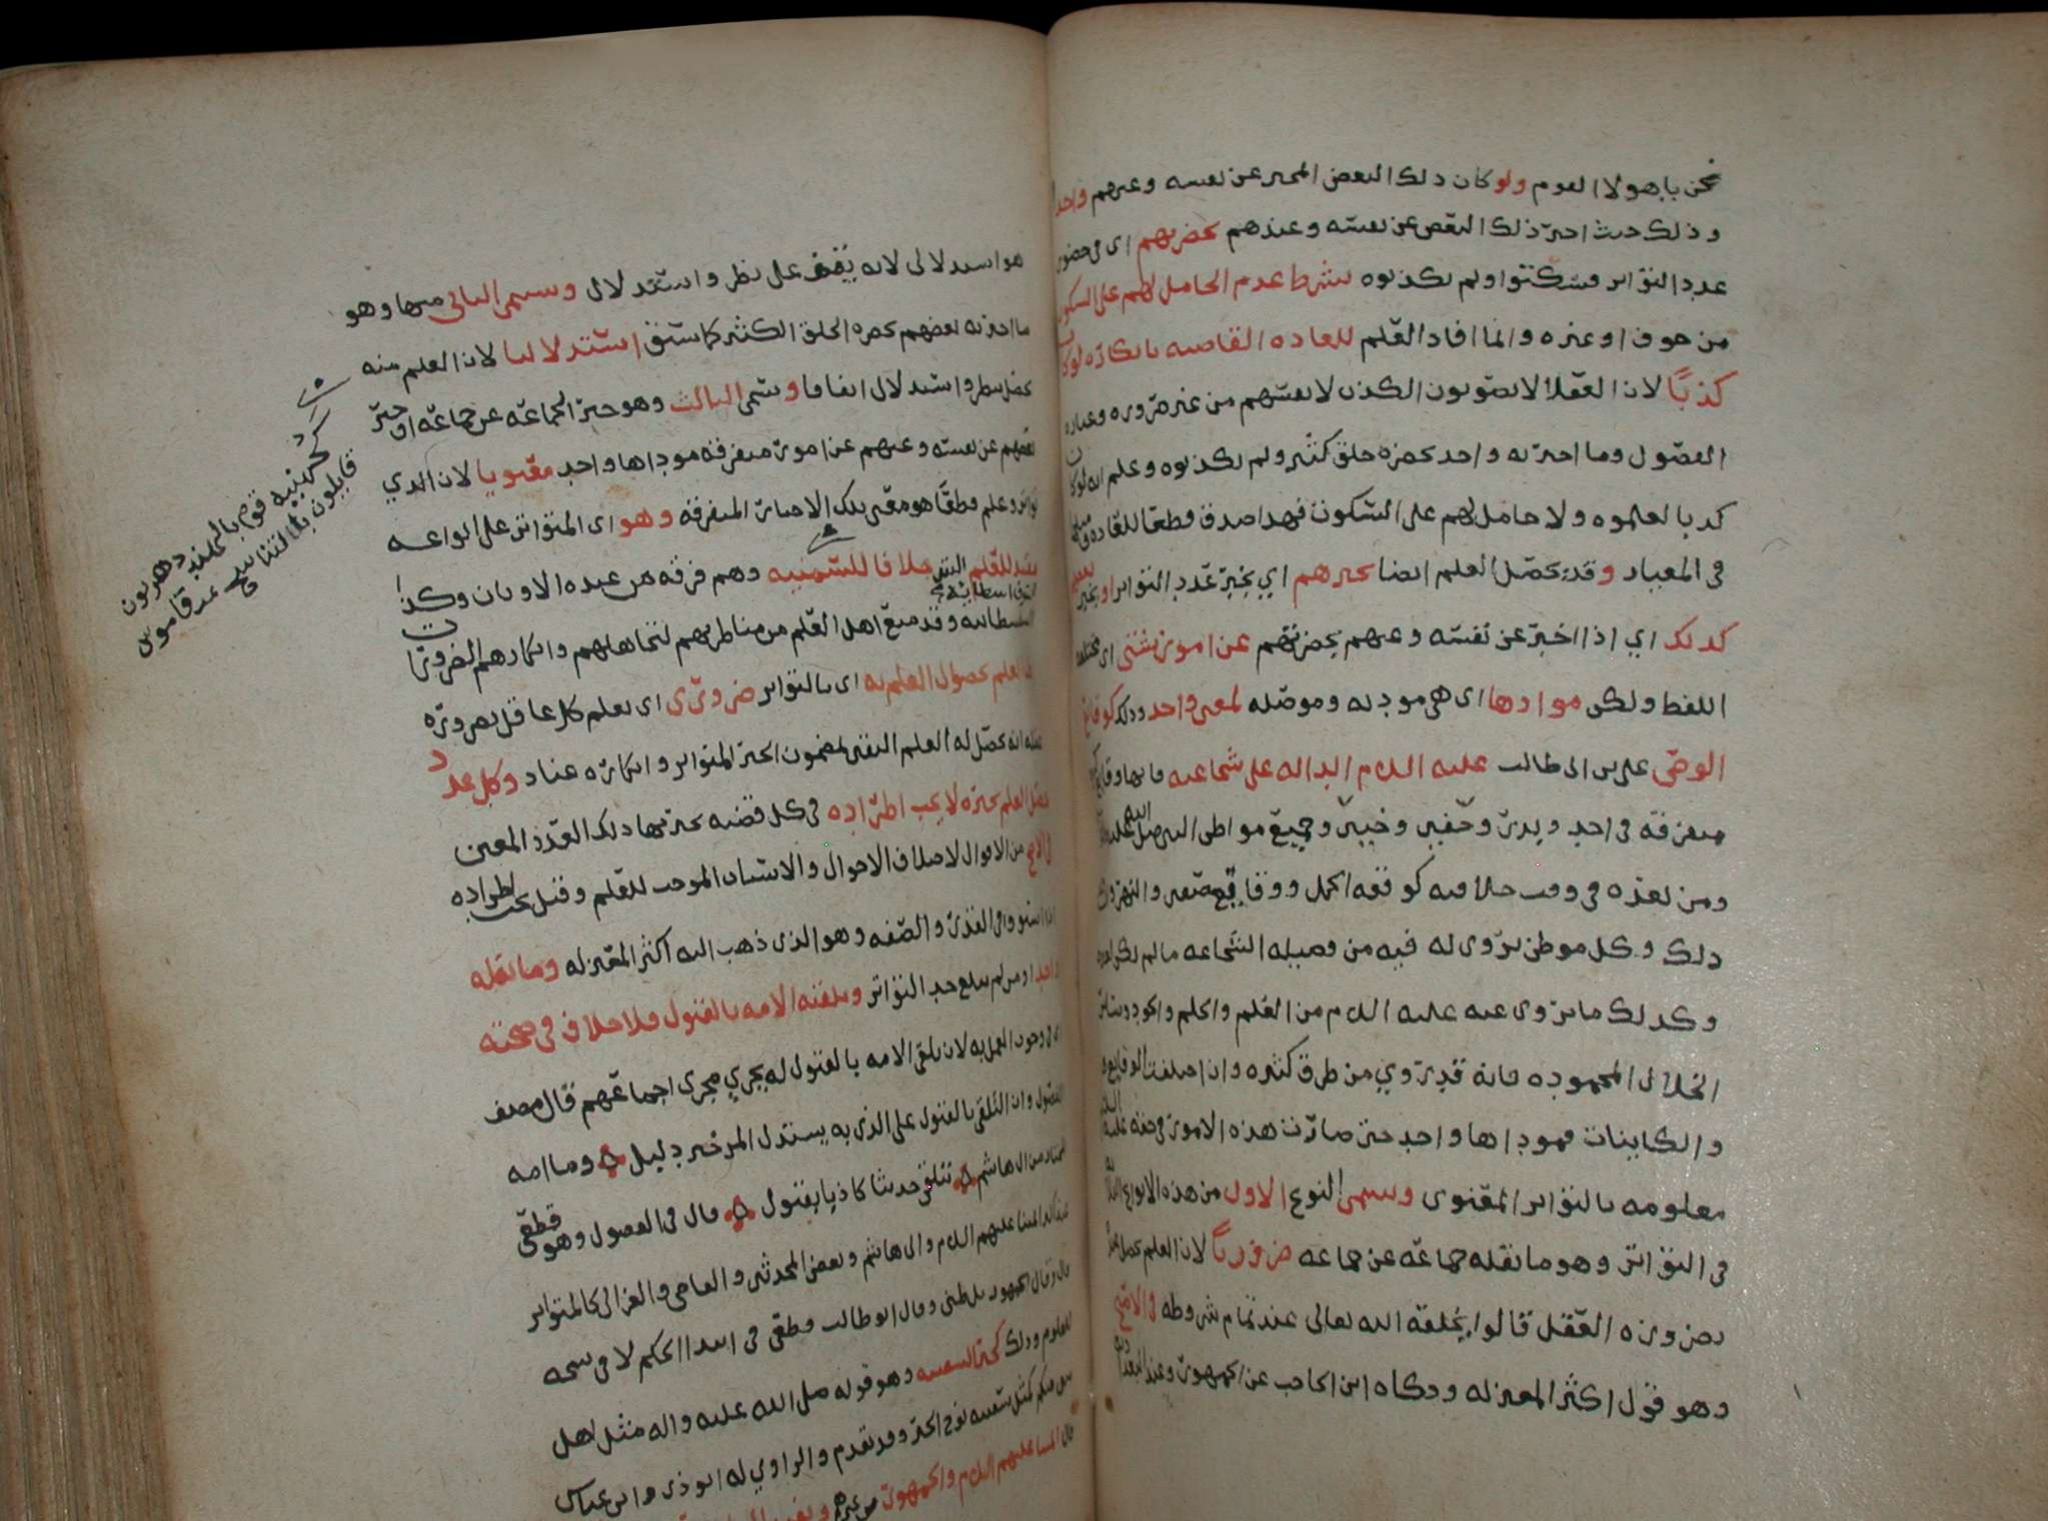 نحن يا هولا القوم ولو كان ذلك البعض المخبر عن نفسه وغيرهم واحدا
وذلك حيث اخبر ذلك البعض عن نفسه وعندهم بحضرتهم اي في حضور
عدد التواتر فسكتوا ولم يكذبوه بشرط عدم الحامل لهم على السكوت
من خوف او غيره وانما افاد العلم للعاده القاضيه بانكاره لو كان
كذبا لان العقلا لا يصوبون الكذب لانفسهم من غير ضروره وعباره
الفصول وما اخبر به واحد بحضره خلق كثير ولم يكذبوه وعلم انه لو كان
كذبا لعلموه ولا حامل لهم على السكوت فهو صدق قطعا للعاده
في المعيار وقد يحصل العلم ايضا بخبرهم اي بخبر عدد التواتر او بخبر بعضهم
كذلك اي اذا اخبر عن نفسه وعنهم بحضرتهم عن امور شتى اي مختلفه
اللفظ ولكن مواردها اي هي موديه وموصله لمعنى واحد وذلك كوقايع
الوصي علي بن ابي طالب عليه السلام الداله على شجاعته فانها وقايع
متفرقه في احد وبدر وحنين وخيبر وجميع مواطن النبي صلى الله عليه واله
ومن بعده في وقت خلافته كوقعه الجمل ووقايع صفين والنهروان
ذلك وكل موطن يروى له فيه من وصيله الشجاعه ما لم يكن لغيره
وكذلك ما يروى عنه عليه السلام من العلم والحلم والجود وساير
الخلال المحموده فانه قد روي من طرق كثيره وان اختلفت الوقايع
والكاينات فموداها واحد حتى صارت هذه الامور في حقه عليه السلام
معلومه بالتواتر المعنوي وسمي النوع الاول من هذه الانواع الثلاثه
في التواتر وهو ما نقله جماعه عن جماعه ضروريا لان العلم يحصل عنده
بضروره العقل قالوا يخلقه الله تعالى عند تمام شروطه في الاصح
وهو قول اكثر المعتزله وحكاه ابن الحاجب عن الجمهور وعند البغداديه
هو استدلالي لانه يقف على نظر واستدلال وسمي الثاني منها وهو
ما اخبر به بعضهم بحضره الخلق الكثير كما سبق استدلاليا لان العلم منه
يحصل بنظر واستدلال اتفاقا وسمي الثالث وهو خبر الجماعه عن جماعه او خبر
بعضهم عن نفسه وعنهم عن امور متفرقه موداها واحد معنويا لان الذي
تواتر وعلم قطعا هو معنى تلك الاخبار المتفرقه وهو اي المتواتر على انواعه
يفيد للعلم خلافا للسمنيه وهم فرقه من عبده الاوثان وكذا
السفسطائيه وقد منع اهل العلم من مناظرتهم لتجاهلهم وانكارهم الضروريات
العلم بحصول العلم به اي بالتواتر ضروري اي يعلم كل عاقل بضروره
عقله انه يحصل له العلم اليقين لمضمون الخبر المتواتر وانكاره عناد وكل عدد
حصل العلم بخبره لا يجب اطراده في كل قضيه يخبر بها ذلك العدد المعين
في الاصح من الاقوال لاختلاف الاحوال والاسباب الموجب للعلم وقيل يجب اطراده
اذا استووا في القدر والصفه وهو الذي ذهب اليه اكثر المعتزله وما نقله
واحد او من لم يبلغ حد التواتر وتلقته الامه بالقبول فلا خلاف في صحته
اي في وجوب العمل به لان تلقي الامه بالقبول له يجري مجرى اجماعهم قال مصنف
الفصول وان التلقي بالقبول على الذي به يستدل المرء خير دليل وما امه
المختار من ال هاشم تتلقى حديثا كاذبا بقبول قال في الفصول وهو قطعي
عند ايمتنا عليهم السلام وابي هاشم وبعض المحدثين والقاضي والغزالي كالمتواتر
قال وقال الجمهور بل ظني وقال ابو طالب قطعي في ابتدا الحكم لا في نسخه
المعلوم وذلك كخبر السفينه وهو قوله صلى الله عليه واله مثل اهل
بيتي فيكم كمثل سفينه نوح الخبر وقد تقدم والراوي له ابو ذر وابن عباس
قال ايمتنا عليهم السلام والجمهور من غيرهم
سمنيه قوم بالهند دهريون
قايلون بالتناسخ عن قاموس